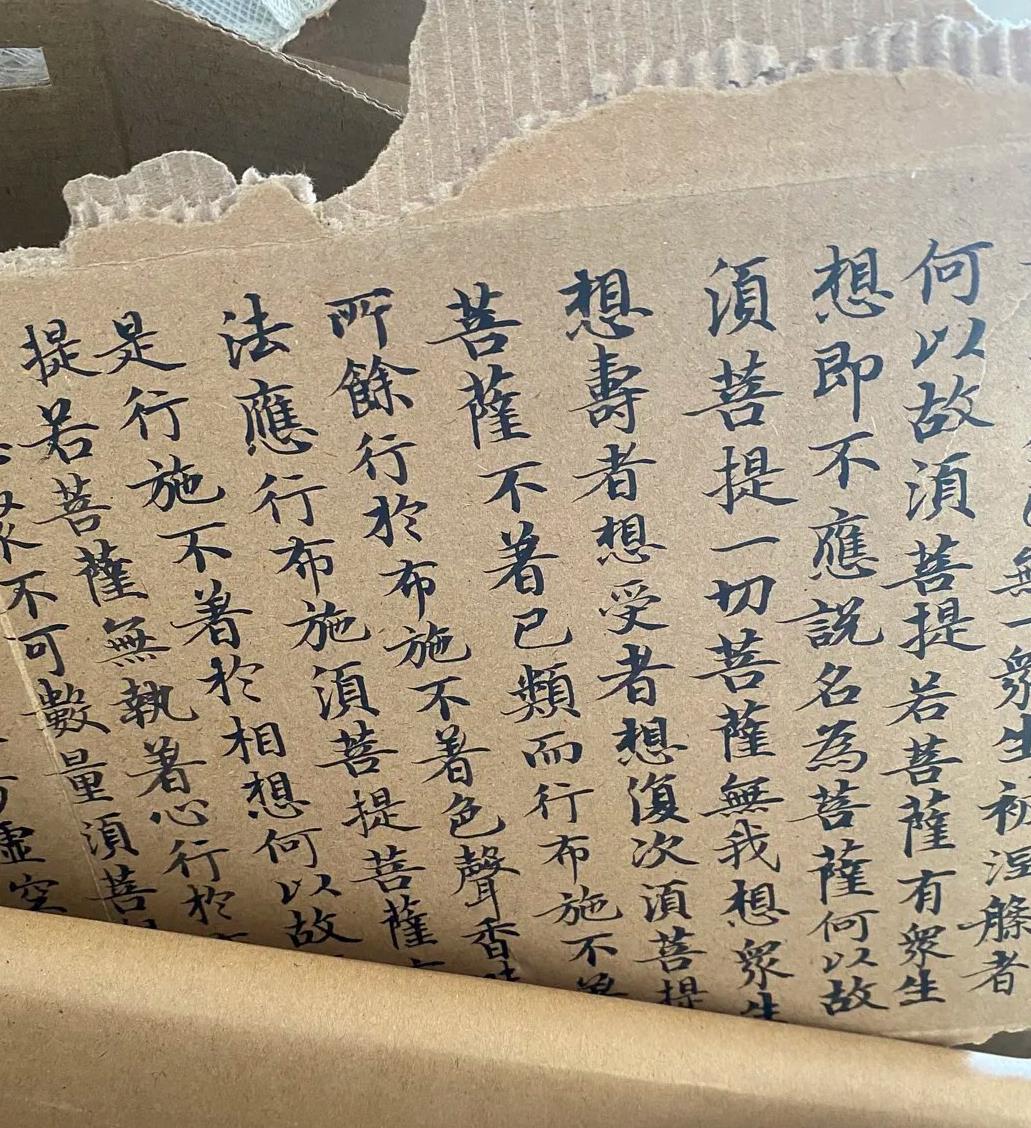 無一眾生被涅槃者
何以故須菩提若菩薩有眾生
想即不應說名為菩薩何以故
須菩提一切菩薩無我想眾生
想壽者想受者想復次須菩提
菩薩不著已類而行布施不著
所餘行於布施不著色聲香味
法應行布施須菩提菩薩
是行施不著於相想何以故
提若菩薩無執著心行於
不可數量須菩
虛空